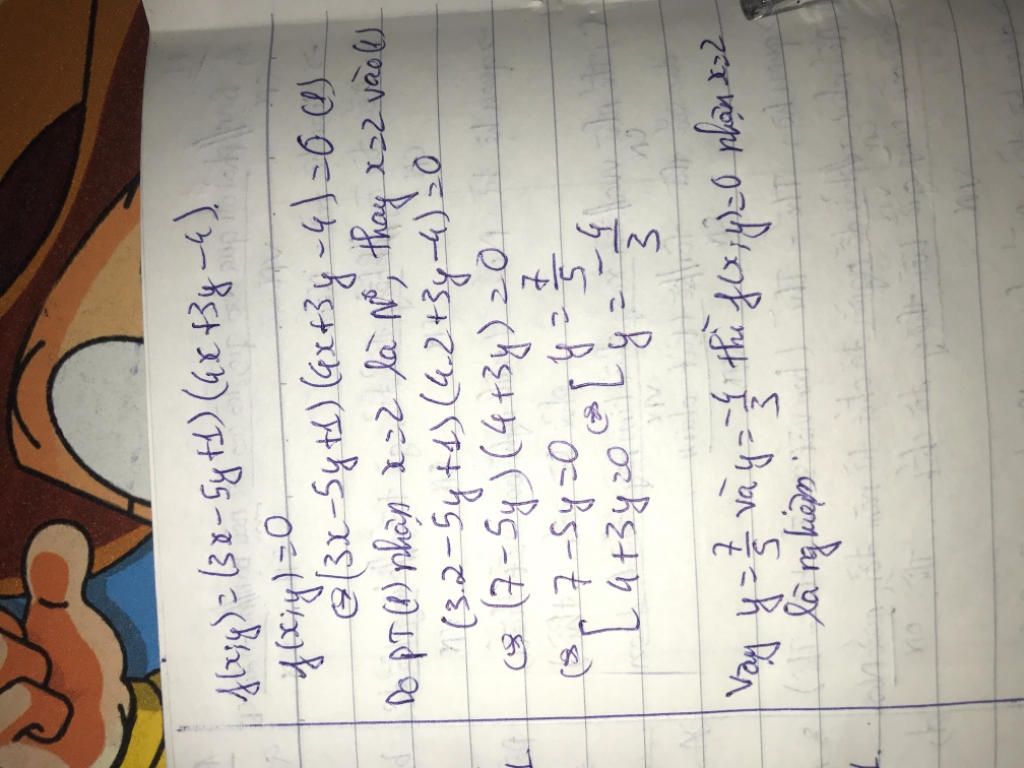 f(x,y)=(3x-5y+1)(4x+3y-4).
f(x,y)=0
⇔(3x-5y+1)(4x+3y-4)=0 (1)
Do PT(1) nhận x=2 là N⁰, thay x=2 vào(1)
(3.2-5y+1)(4.2+3y-4)=0
⇔ (7-5y)(4+3y)=0
⇔ [ 7-5y=0 ⇔ [ y=7/5
4+3y=0 y=-4/3
Vậy y=7/5 và y=-4/3 thì f(x,y)=0 nhận x=2
là nghiệm.